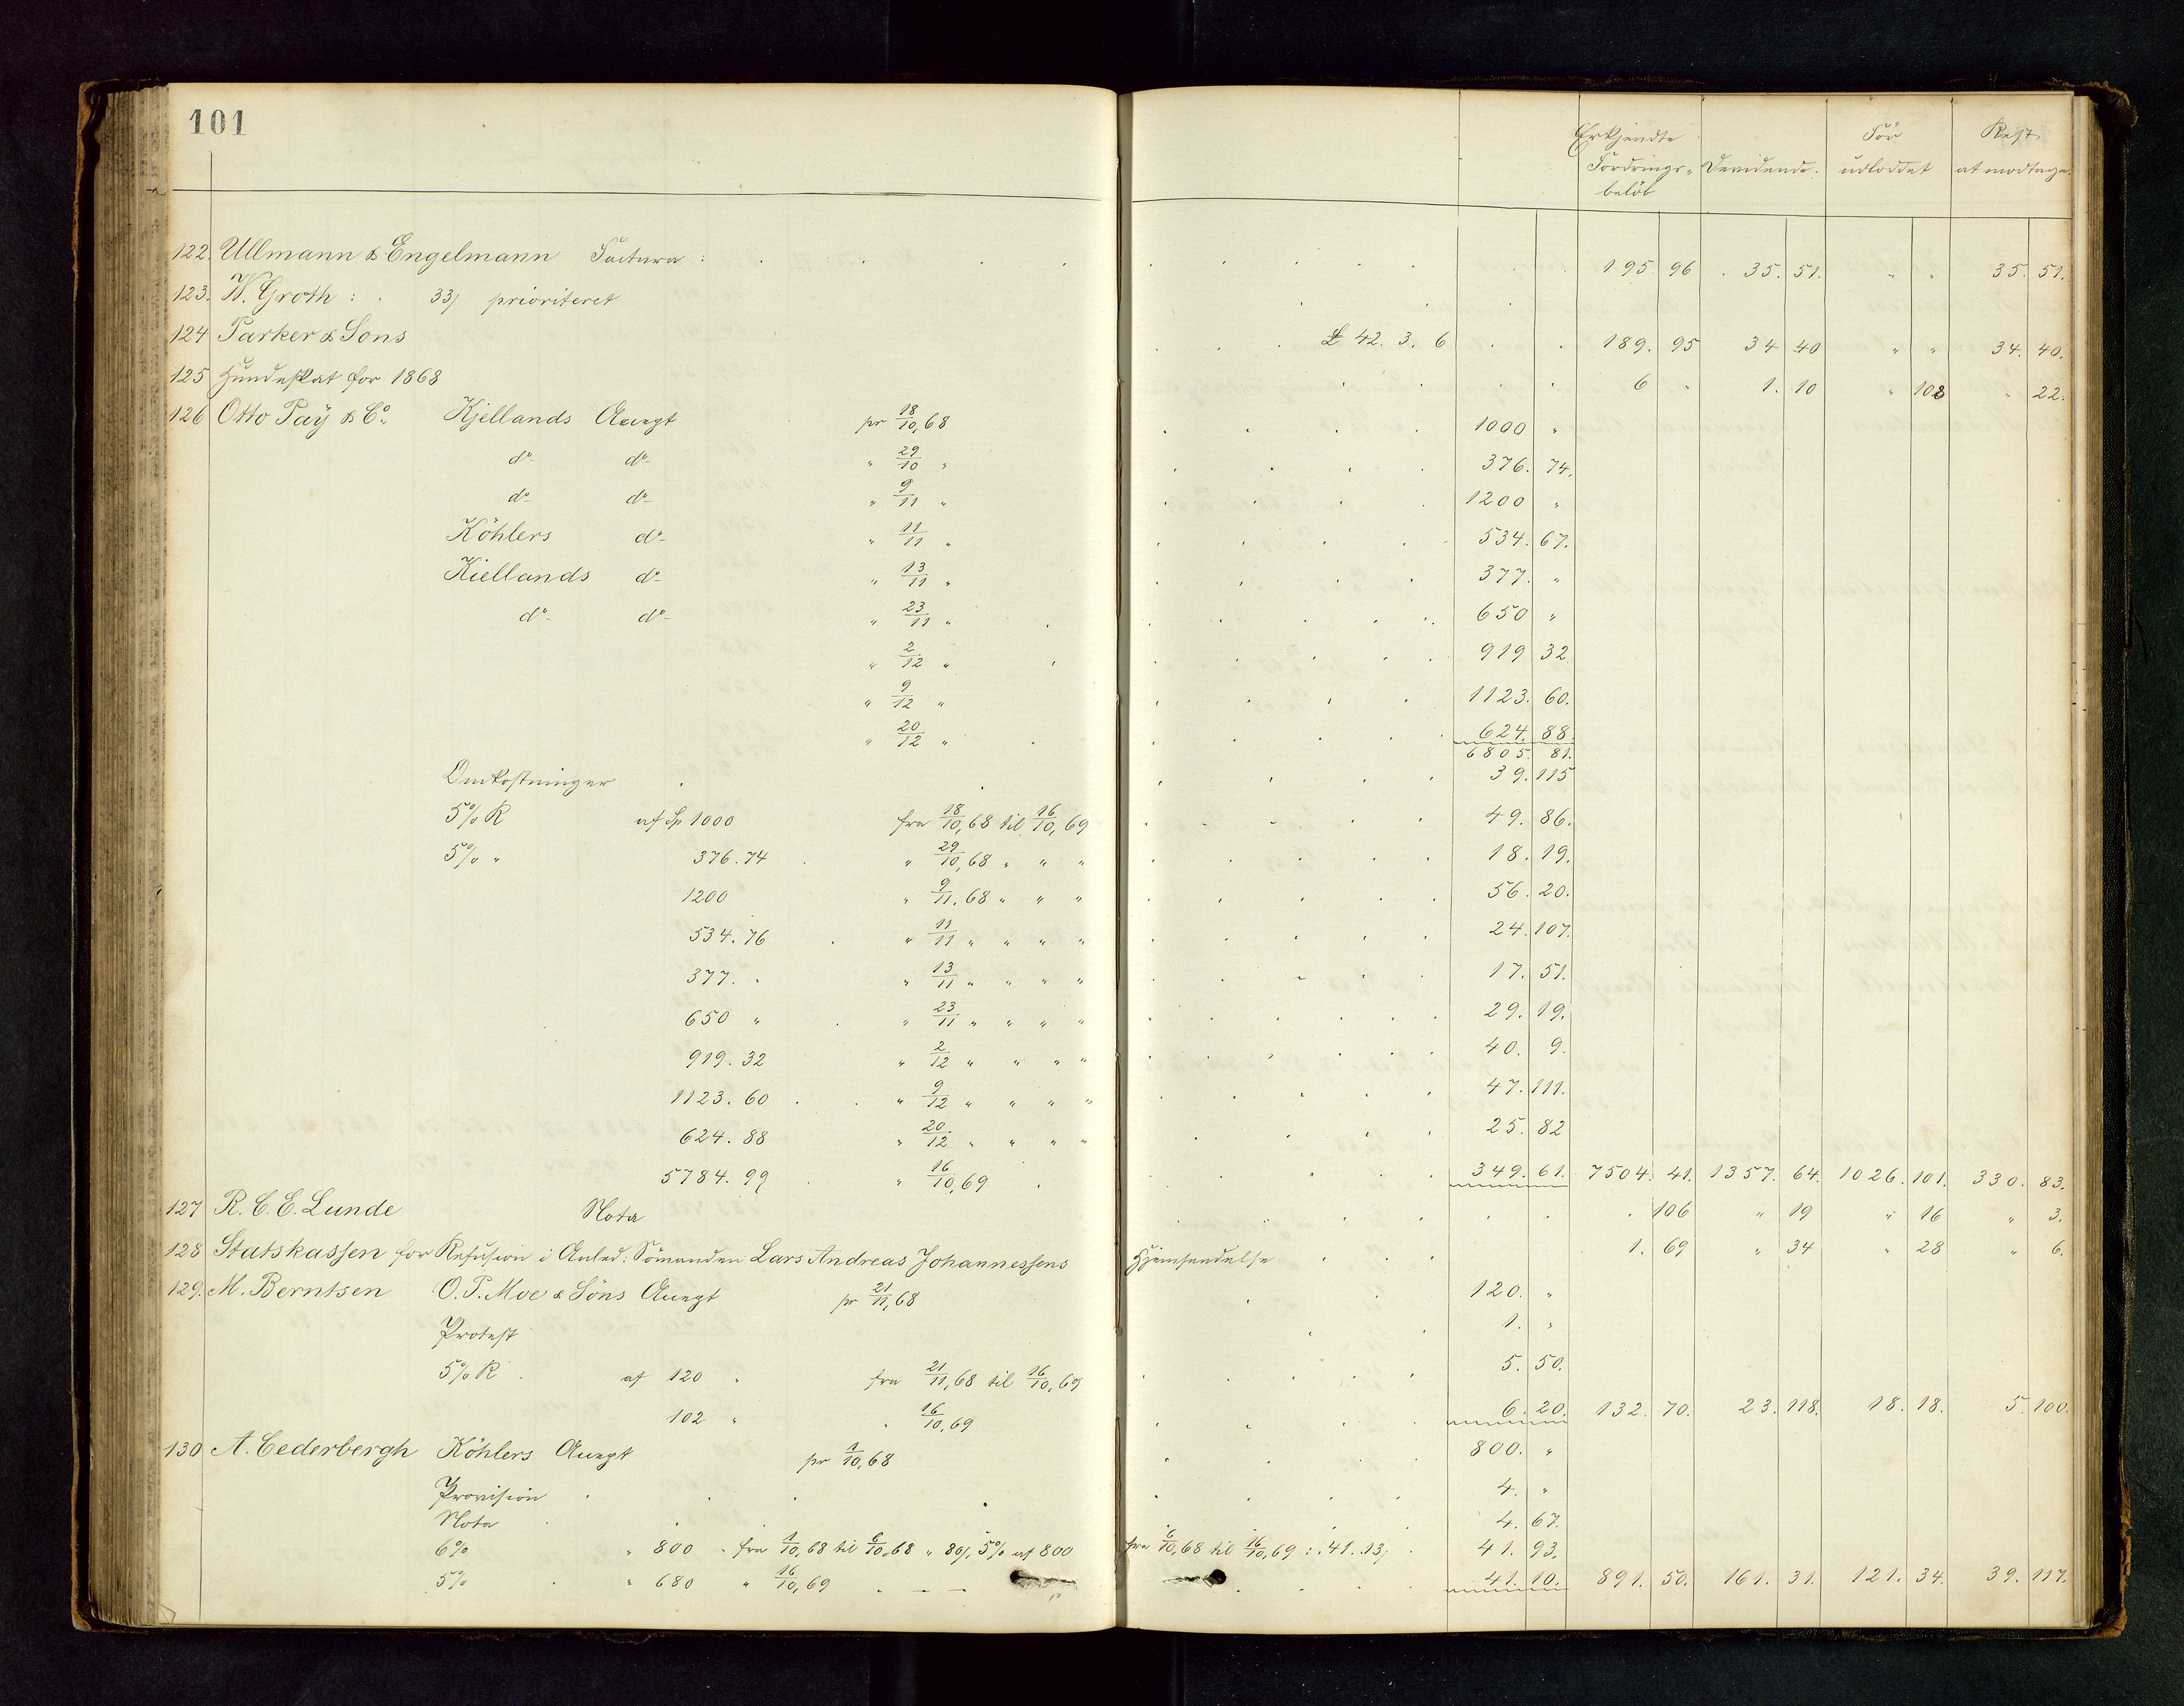 101
Erkjendte Fordrings- beløb
Devidende.
Før udloddet
Rest at modtage.
122. Ullmann & Engelmann Factura : 195. 96 35. 51. " " 35. 51.
123. W. Groth : 33/ prioriteret
124 Parker & Sons £ 42. 3. 6 189. 95 34 40 " " 34. 40.
125 Hundeskat for 1868 6 " 1. 10 " 108 " 22.
126 Otto Paÿ & Co. Kjellands Accept pr 18/10, 68 1000 "
do do " 29/10 " 376. 74.
do do " 9/11 " 1200 "
Köhlers do " 11/11 " 534. 67.
Kiellands do " 13/11 " 377. "
do do " 23/11 " 650 "
" 2/12 " 919 32
" 9/12 " 1123. 60.
" 20/12 " 624. 88.
6805. 81.
Omkostninger 39. 115
5% R af Sp 1000 fra 18/10, 68 til 16/10, 69 49. 86.
5% " 376. 74 " 29/10, 68 " " " 18. 19.
1200 " 9/11. 68 " " " 56. 20.
534. 76 " 11/11 " " " " 24. 107.
377. " " 13/11 " " " " 17. 51.
650 " " 23/11 " " " " 29. 19.
919. 32 " 2/12 " " " " 40. 9.
1123. 60 " 9/12 " " " " 47. 111.
624. 88 " 20/12 " " " " 25. 82
5784. 99 " 16/10, 69 349. 61. 7504. 41. 1357. 64. 1026. 101. 330. 83.
127 R. C. E. Lunde Nota 106 " 19 " 16 " 3.
128 Statskassen for Refusion i Anled: Sömanden Lars Andreas Johannessens Hjemsendelse 1. 69 " 34 " 28 " 6.
129. M. Berntsen O. P. Moe & Söns Accept pr 21/11, 68 120. "
Protest 1. "
5% R af 120 " fra 21/11, 68 til 16/10, 69 5. 50.
102 " " 16/10, 69 6. 20. 132. 70. 23. 118. 18. 18. 5. 100.
130 A. Cederbergh Köhlers Accept pr 1/10, 68 800. "
Provision 4. "
Nota 4. 67.
6% " 800 " fra 1/10, 68 til 6/10, 68 " 80/, 5% af 800 fra 6/10, 68 til 16/10, 69 : 41. 13/ 41. 93.
5% " 680 " 16/10, 69 41. 10. 891. 50. 161. 31. 121. 34. 39. 117.